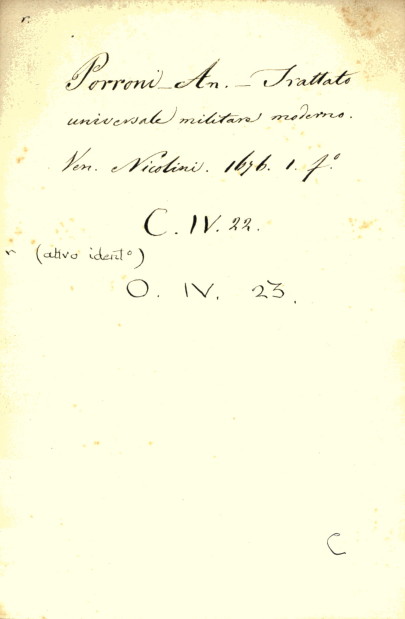 r.
Porroni_An. _ Trattato
universale militare moderno.
Ven. Nicolini. 1676. 1. f.º
C. IV. 22.
r (altro identº)
O. IV. 23.
C